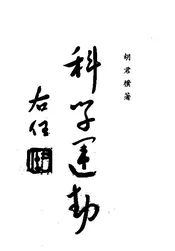 胡君樸著
科学運動
右任